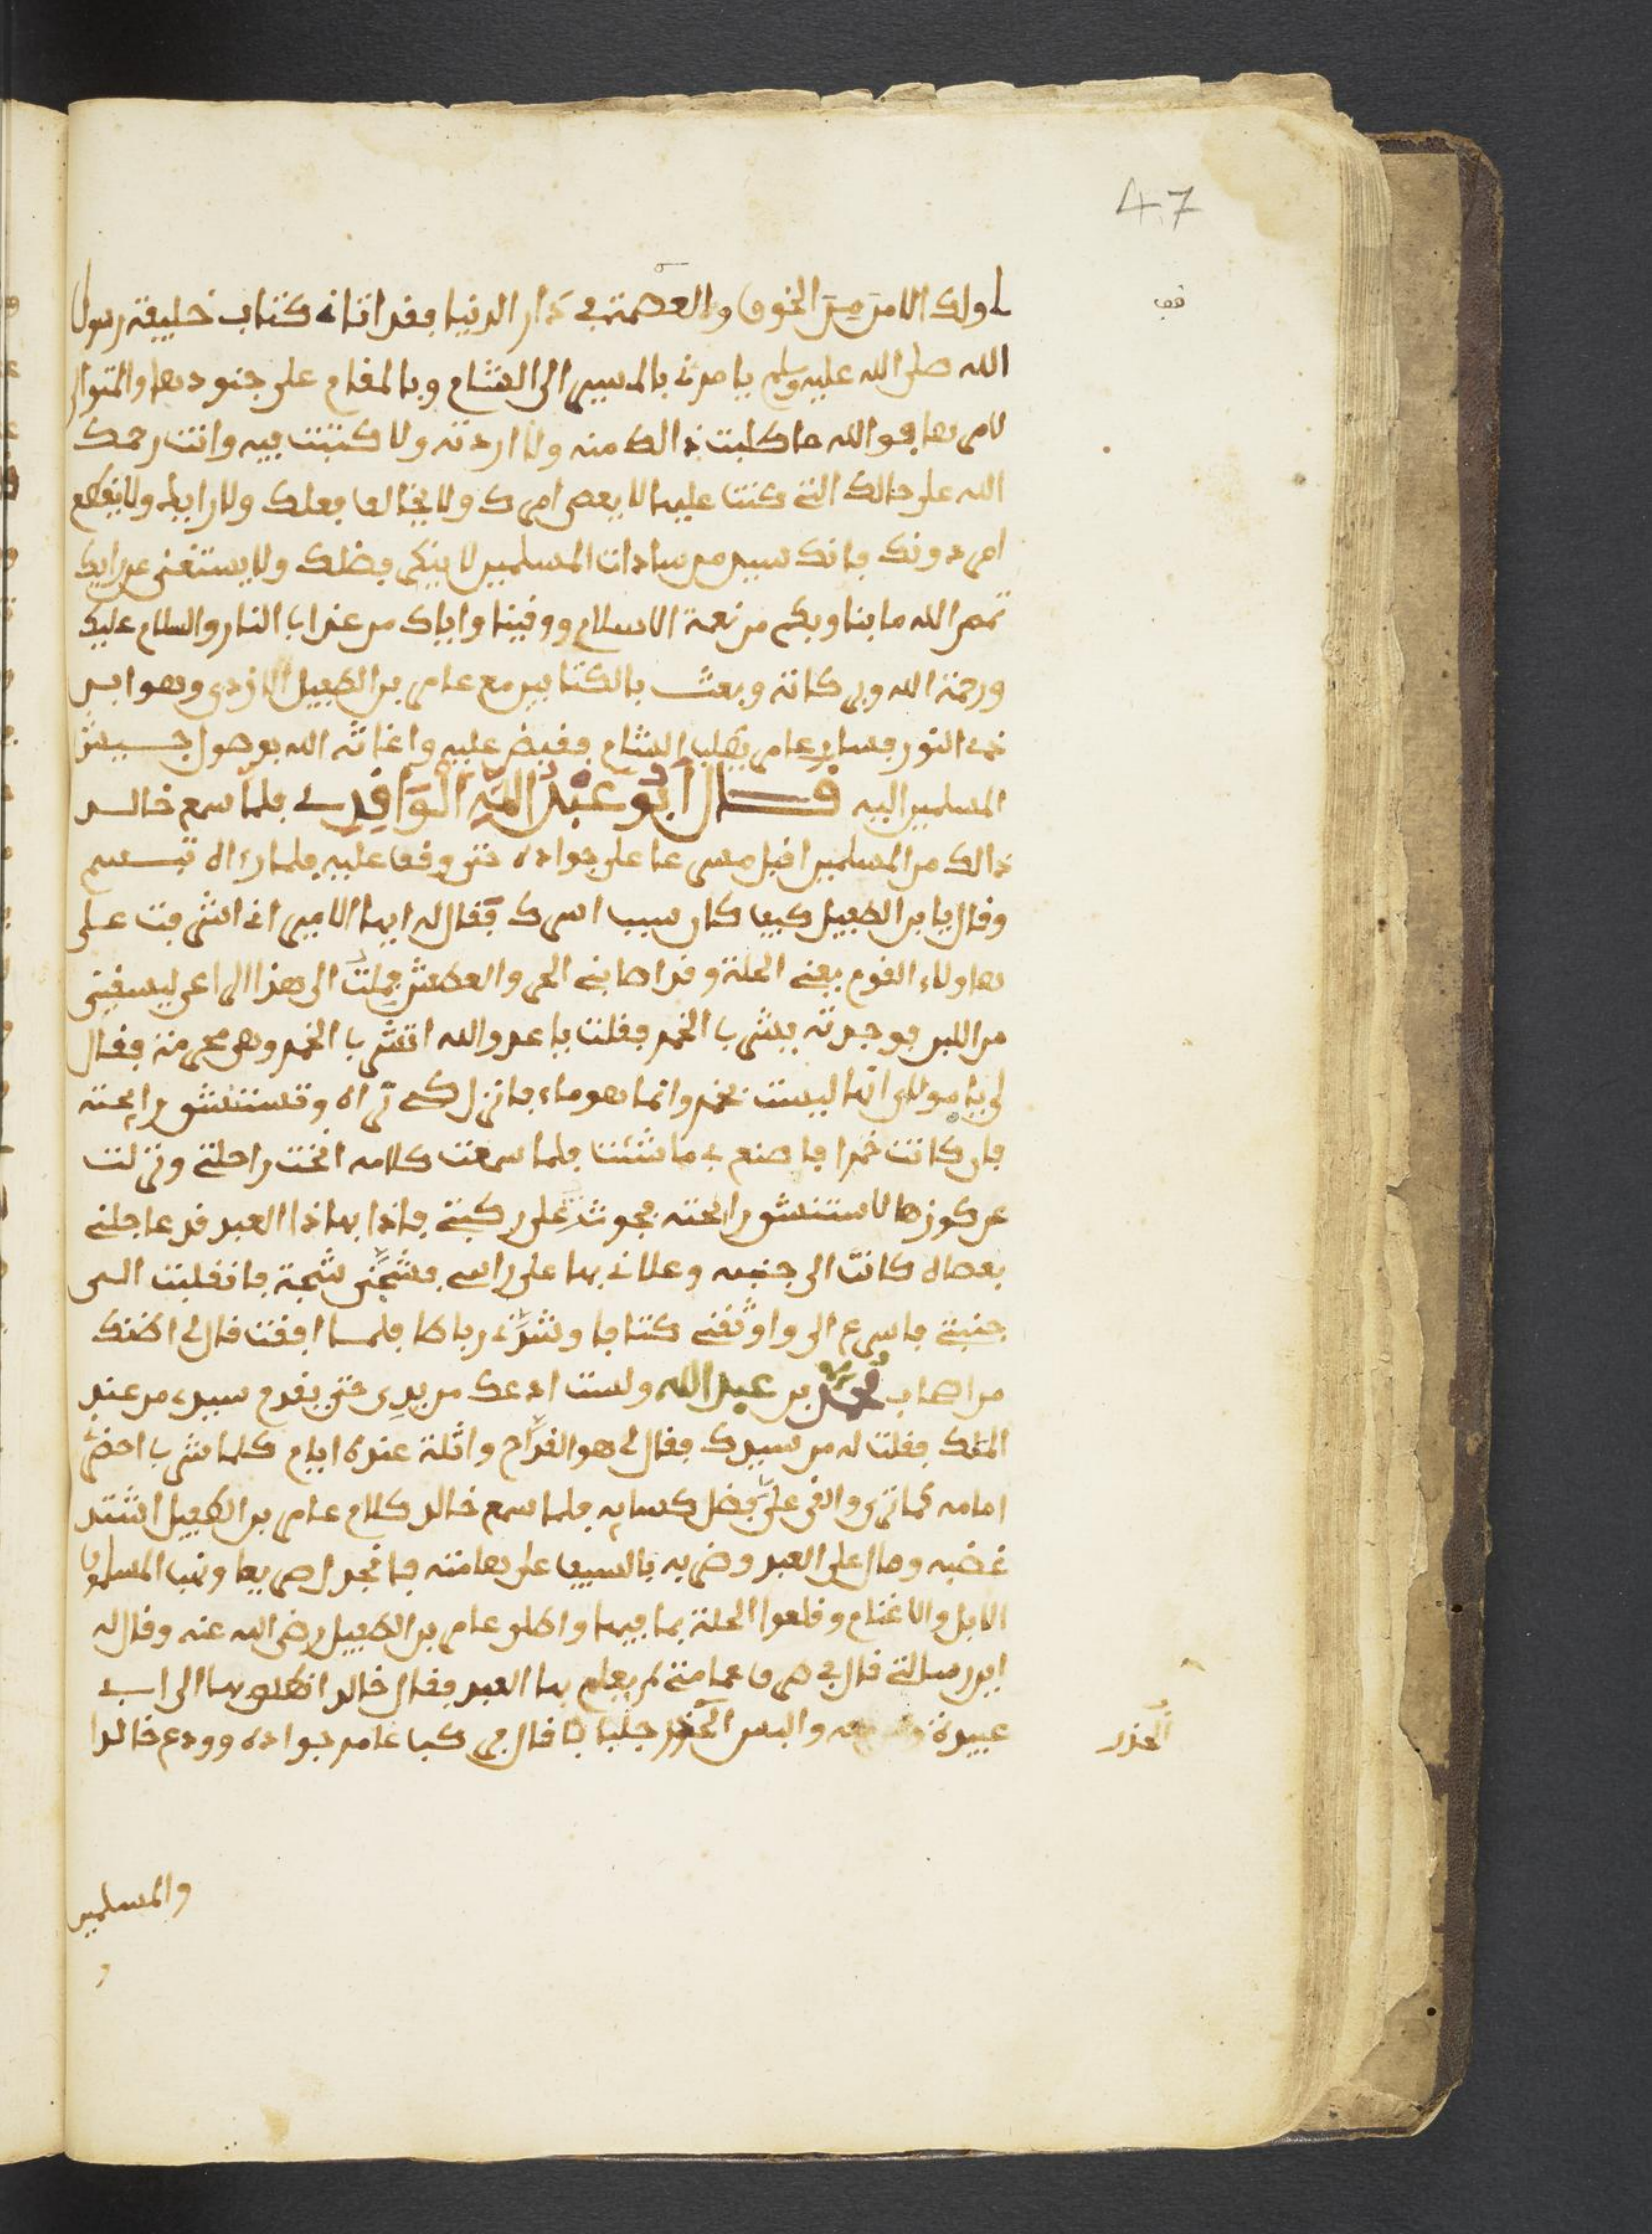 47
لي ولك الامن من الخوف والعصمة في دار الدنيا فقد اتاني كتاب خليفة رسول
الله صلى الله عليه وسلم يامرني بالمسير الى الشام وبالمقام على جنودها والمتولي
لامرها فوالله ما طلبت ذالك منه ولا اردته ولا كتبت فيه وانت رحمك
الله على حالك التي كنت عليها لا يعصى امرك ولا يخالف فعلك ولا رايك ولا يقطع
امر دونك فانك سيد من سادات المسلمين لا ينكر فضلك ولا يستغنى عن رايك
تمم الله ما بنا وبكم من نعمة الاسلام ووقينا واياك من عذاب النار والسلام عليك
ورحمة الله وبركاته وبعث بالكتابين مع عامر بن الطفيل الازدي وهو ابن
ذي النور فسار عامر يطلب الشام فقبض عليه واغاثه الله بوصول جيش
المسلمين اليه قال ابو عبد الله الواقدي فلما سمع خالد
ذالك من المسلمين اقبل مسرعا على جواده حتى وقف عليه فلما راه تبسم
وقال يا بن الطفيل كيف كان سبب اسرك فقال له ايها الامير اني اشرفت على
هاولاء القوم يعني الحلة وقد اصابني الحر والعطش فملت الى هذا الراعي ليسقيني
من اللبن فوجدته يشرب الخمر فقلت يا عدو الله اتشرب الخمر وهي محرمة فقال
لي يا مولاي انها ليست بخمر وانما هو ماء فانزل كي تراه وتستنشق رايحته
فان كانت خمرا فاصنع بي ما شئت فلما سمعت كلامه انخت راحلتي ونزلت
عن كوزها لاستنشق رايحته فجوثت على ركبتي فاذا بهاذا العبد قد عاجلني
بعصاه كانت الى جنبه وعلاني بها على راسي فشجني شجة فانقلبت الى
جنبي فاسرع الي واوثقني كتافا وشدني رباطا فلما افقت قال لي اظنك
من اصحاب محمد بن عبد الله ولست ادعك من يدي حتى يقدم سيدي من عند
الملك فقلت له من سيدك فقال لي هو القداح واثلة عنده ايام كلما شرب احضر
امامه كما ترى والقي علي فضل كسايه فلما سمع خالد كلام عامر بن الطفيل اشتد
غضبه ومال على العبد وضربه بالسيف على هامته فانجدل صريعا ونهب المسلمون
الابل والاغنام وقلعوا الحلة بما فيها واطلق عامر بن الطفيل رضي الله عنه وقال له
اين رسالتي قال في طرف عمامتي لم يعلم بها العبد فقال خالد انطلق بها الى ابي
عبيدة والبس الحذر جلبابا قال فركب عامر جواده وودع خالدا
الحذر
والمسلمين